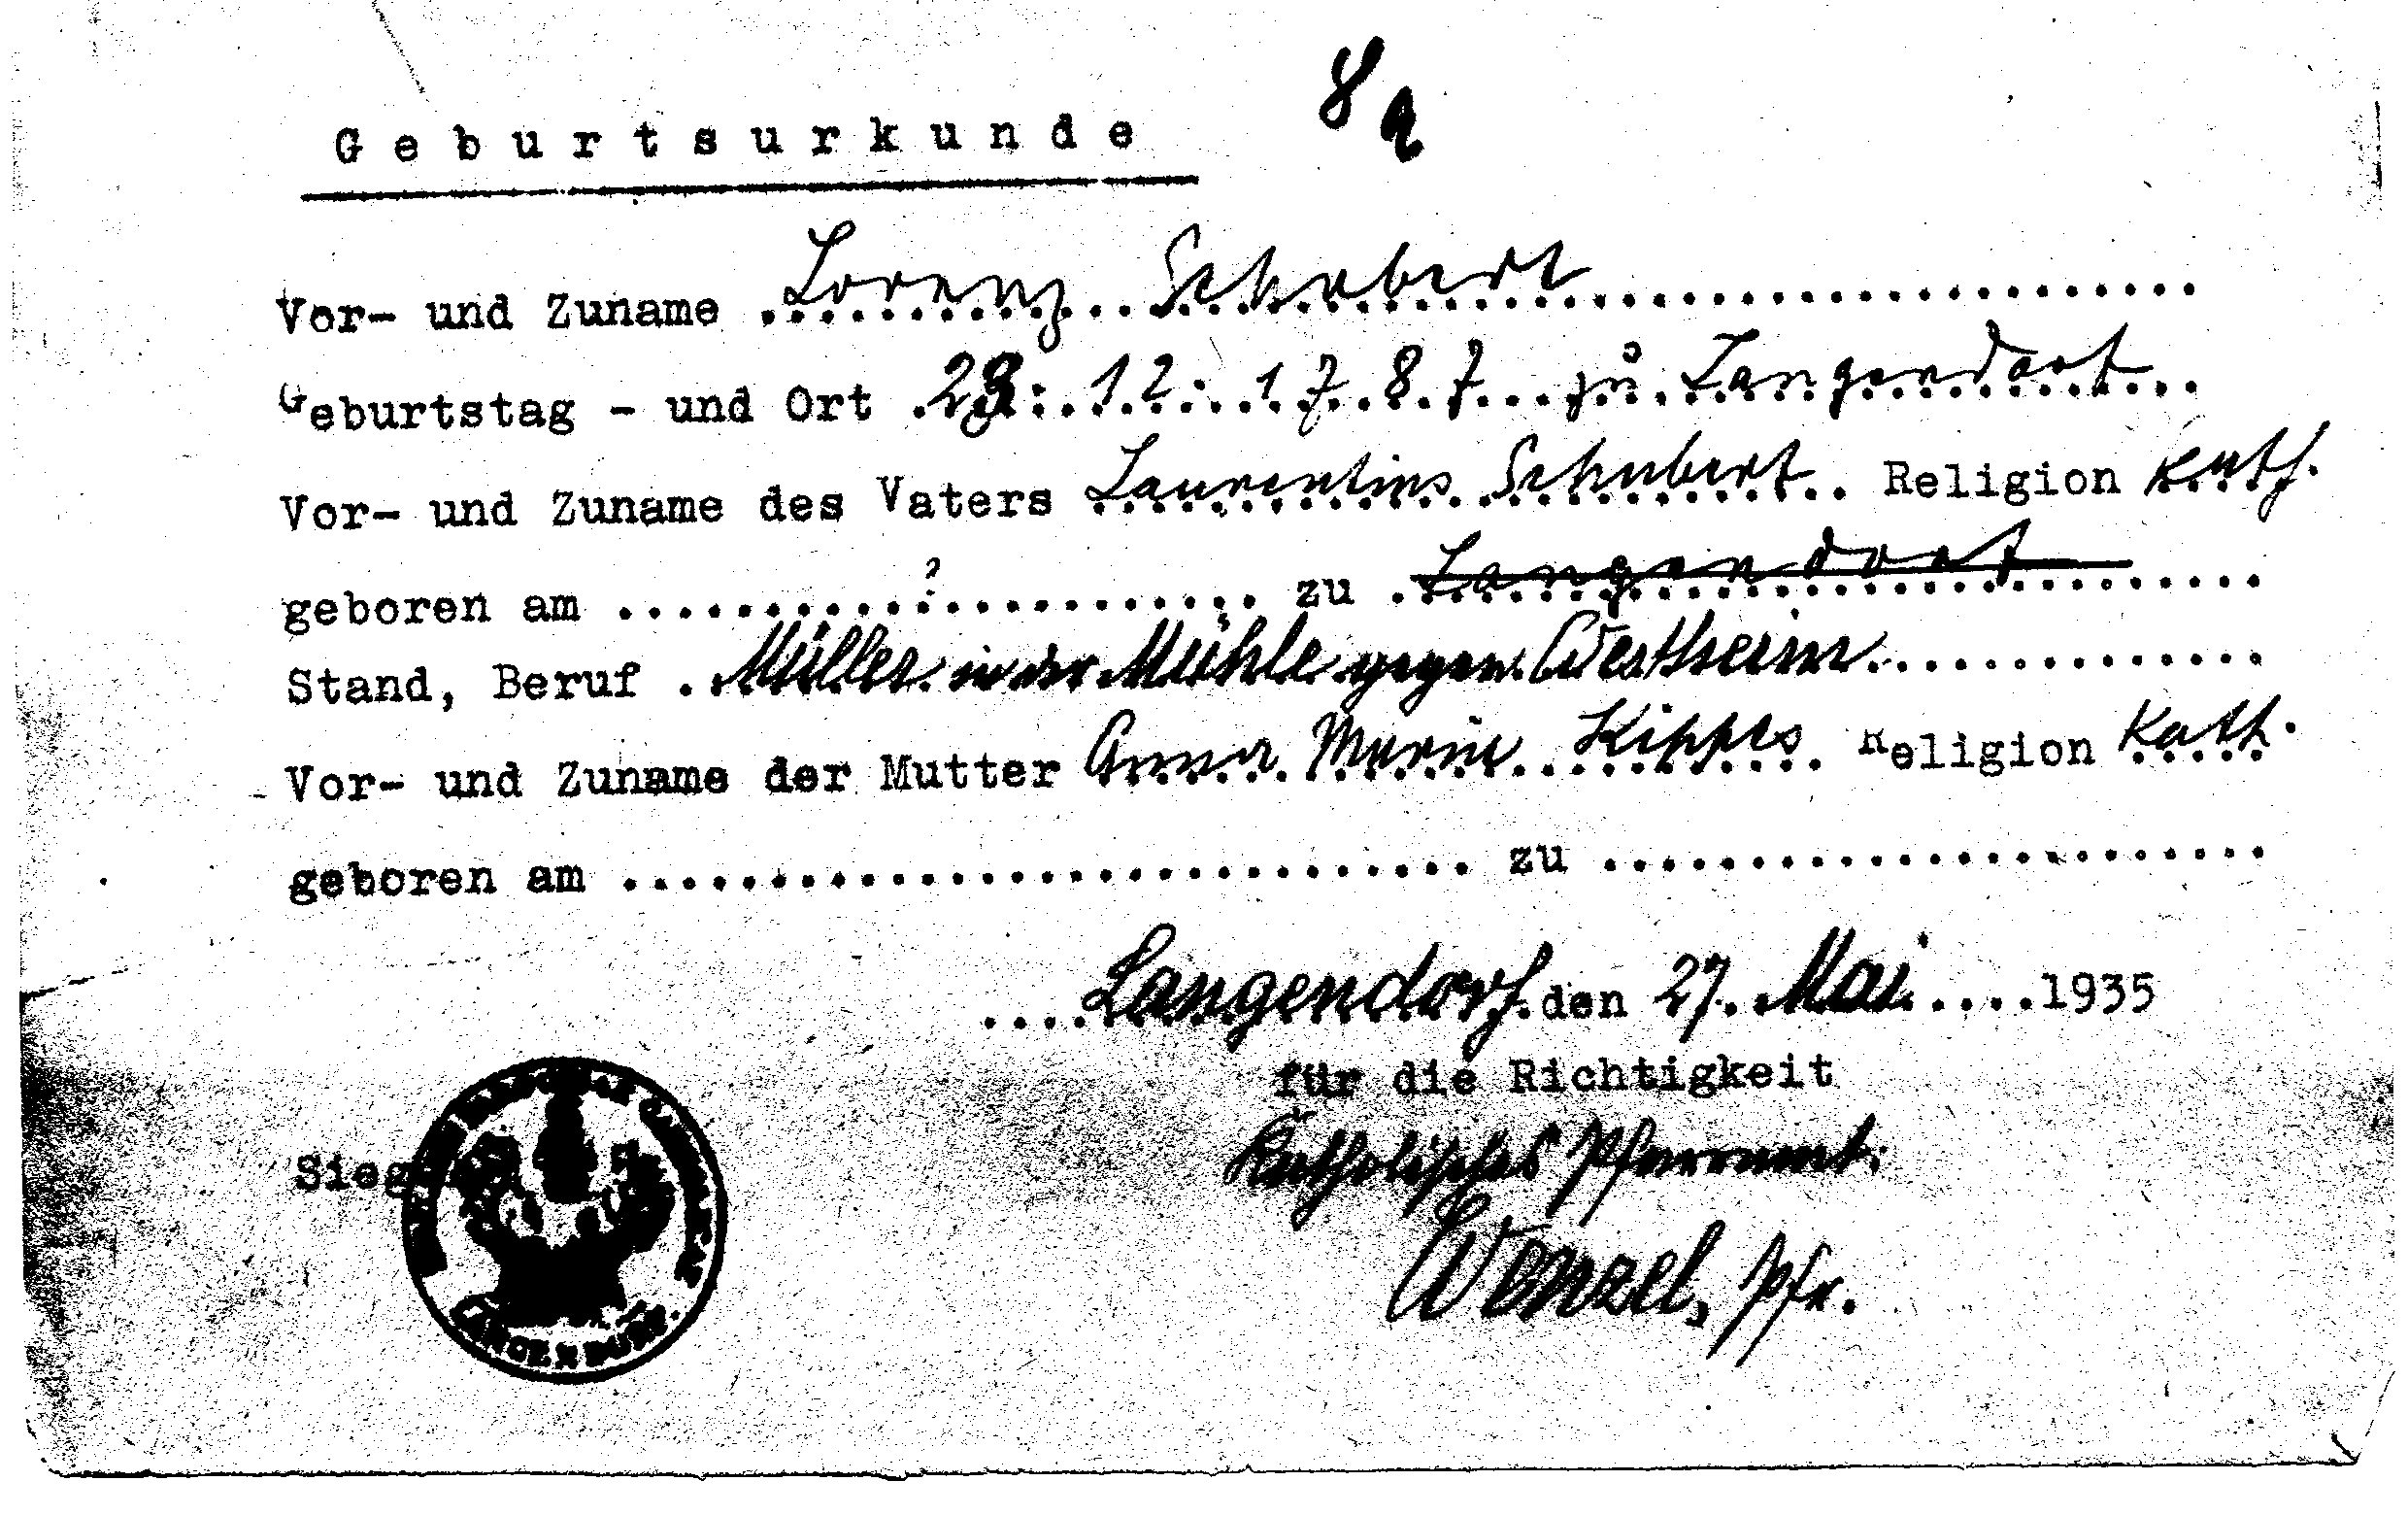 8a
Geburtsurkunde
Vor- und Zuname Lorenz Schubert
Geburtstag - und Ort 29. 12. 1787 zu Langendorf
Vor- und Zuname des Vaters Laurentius Schubert Religion kath.
geboren am ? zu Langendorf
Stand, Beruf Müller in der Mühle gegen Westheim
Vor- und Zuname der Mutter Anna Maria Kippes Religion kath.
geboren am zu
Langendorf den 27. Mai 1935
für die Richtigkeit
Katholisches Pfarramt:
Wenzel, Pfr.